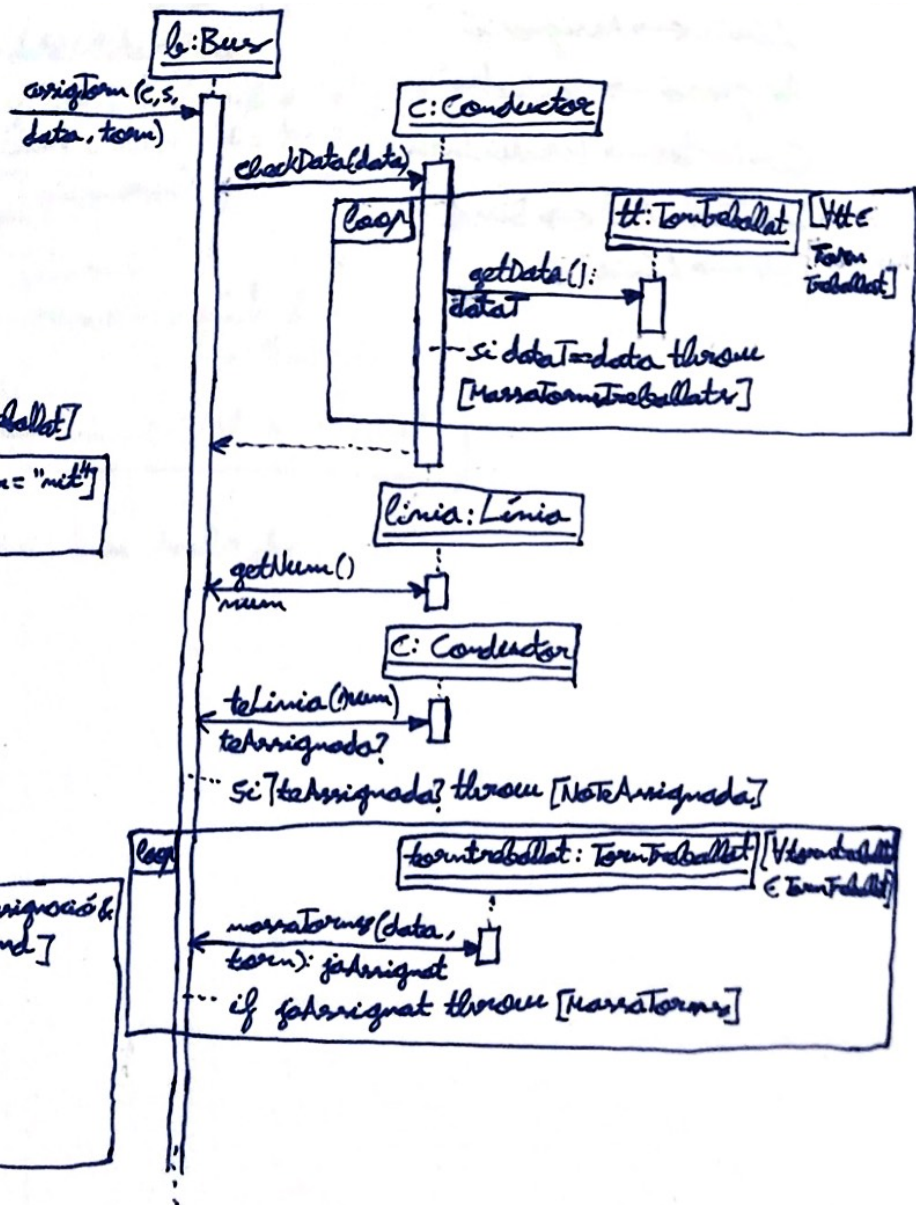 b:Bus
assigTorn (c,s,
data, torn)
c: Conductor
checkData(data)
loop
tt: TornTreballat
[∀tt∈
Torn
Treballat]
getData():
dataT
si dataT==data throw
[MassaTornsTreballats]
ballat]
= "nit"]
linia: Línia
getNum()
num
C: Conductor
teLinia(num)
teAssignada?
si ¬teAssignada? throw [NoTeAssignada]
loop
torntreballat: TornTreballat
[∀torntreballat
∈ TornTreballat]
signació &
nd]
massaTorns(data,
torn): jaAssignat
if jaAssignat throw [MassaTorns]